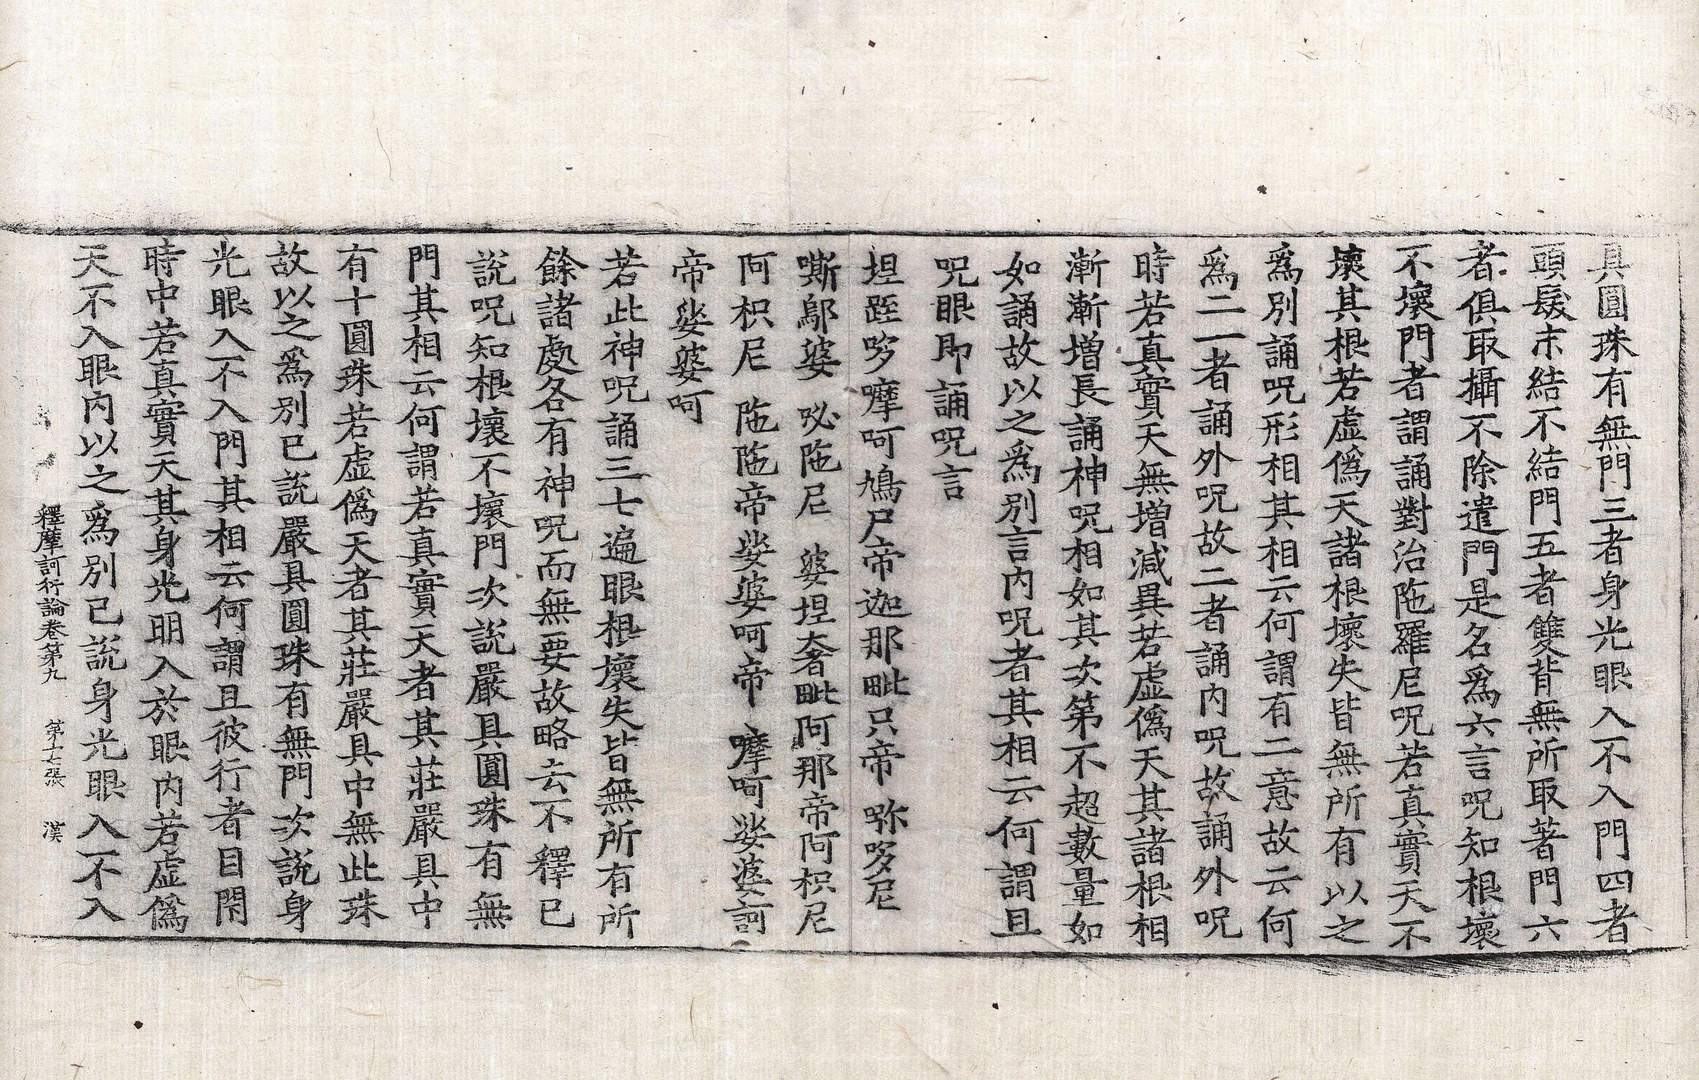 具圓珠有無門三者身光眼入不入門四者
頭髮末結不結門五者雙背無所取著門六
者俱取攝不除遣門是名爲六言呪知根壞
不壞門者謂誦對治陁羅尼呪若真實天不
壞其根若虛僞天諸根壞失皆無所有以之
爲別誦呪形相其相云何謂有二意故云何
爲二一者誦外呪故二者誦內呪故誦外呪
時若真實天無增減異若虛僞天其諸根相
漸漸增長誦神呪相如其次第不超數量如
如誦故以之爲別言內呪者其相云何謂且
呪眼即誦呪言
坦跮哆嚤呵鳩尸帝迦那毗只帝 㖿哆尼
嘶鄔婆 咇陁尼 婆坦奢毗阿那帝阿枳尼
阿枳尼 陁陁帝娑婆呵帝 嚤呵娑婆訶
帝娑婆呵
若此神呪誦三七遍眼根壞失皆無所有所
餘諸處各有神呪而無要故略去不釋已
說呪知根壞不壞門次說嚴具圓珠有無
門其相云何謂若真實天者其莊嚴具中
有十圓珠若虛僞天者其莊嚴具中無此珠
故以之爲別已說嚴具圓珠有無門次說身
光眼入不入門其相云何謂且彼行者目閇
時中若真實天其身光明入於眼內若虛僞
天不入眼內以之爲別已說身光眼入不入
釋摩訶衍論卷第九 第十七張 漢